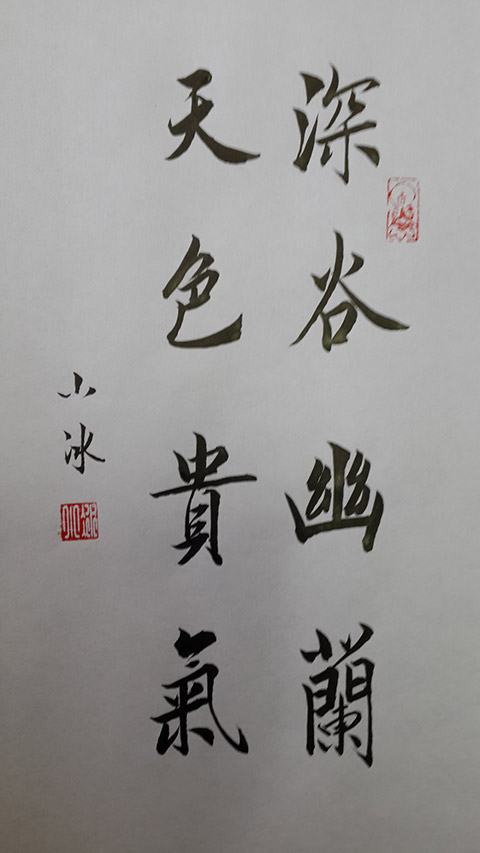 深谷幽蘭
天色貴氣
小冰